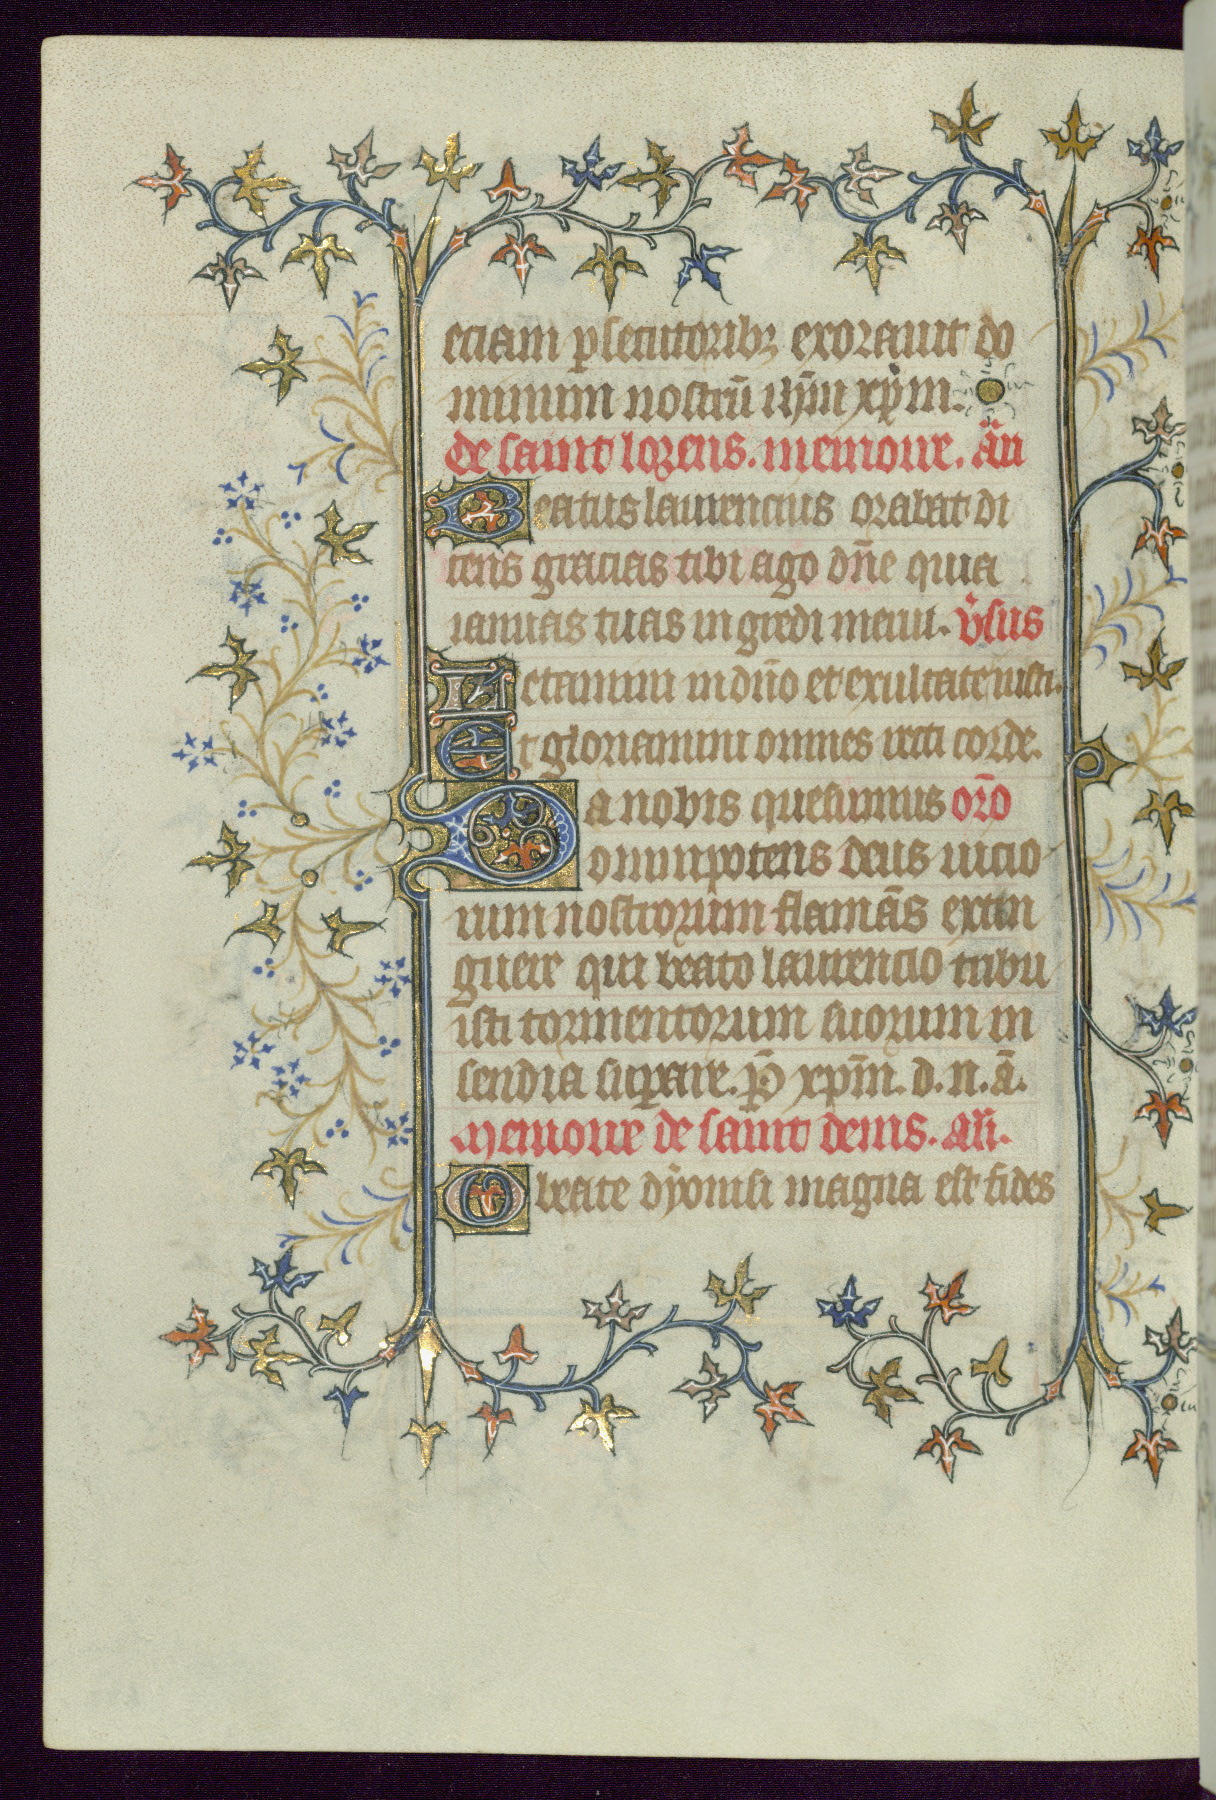 eciam ꝑsecutoribꝫ exorauit do
minum nostrū ihm̄ xp̄m.
de saint lorens. memoire. añ
Beatus laurencius orabat di
cens gracias tibi ago dn̄e quia
ianuas tuas ingredi merui. v̾sus
Letamini in dn̄o et exultate iusti.
Et gloriamini omnes recti corde.
Da nobis quesumus orō
omnipotens deus uicio
rum nostrorum flamās extin
guere qui beato laurencio tribu
isti tormentorum suorum in
cendia suꝑare. p̄ xpm̄. d. n. ā.
Memoire de saint denis. añ.
O beate dyonisi magna est fides